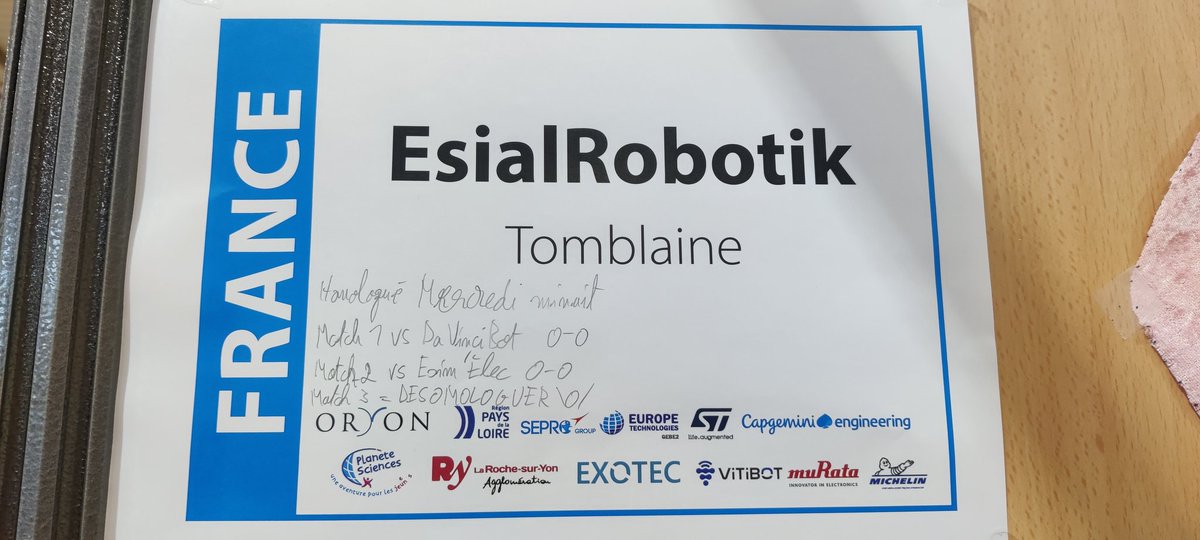 FRANCE
EsialRobotik
Tomblaine
Homologué Mercredi minuit
Match 1 vs DaVinciBot 0-0
Match 2 vs Esim'Élec 0-0
Match 3 = DESOMOLOGUER \O/
ORYON
Région
PAYS
de la
LOIRE
SEPRO GROUP
EUROPE
TECHNOLOGIES
GEBE2
ST
life.augmented
Capgemini engineering
Planète
Sciences
une aventure pour les jeunes
Ry
La Roche-sur-Yon
Agglomération
EXOTEC
ViTiBOT
muRata
INNOVATOR IN ELECTRONICS
MICHELIN